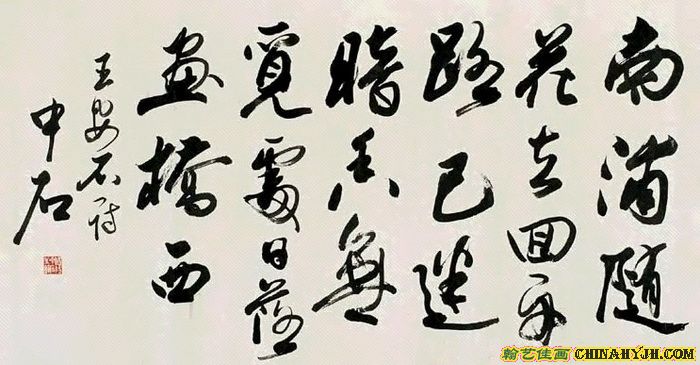 南浦隨
花去回舟
路已迷
暗香無
覓處日落
畫橋西
王安石詩
中石
翰艺佳画 CHINAHYJH.COM